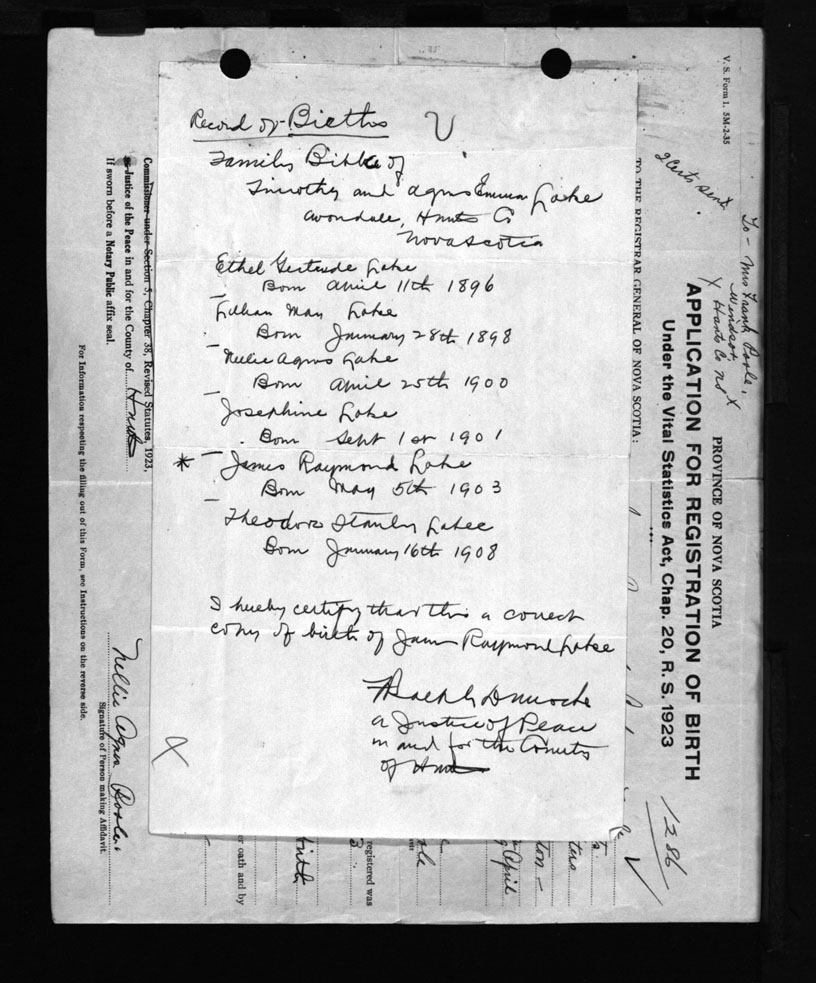 Record of Births
Family Bible of
Timothy and Agnes Emma Lake
Avondale, Hants Co
Nova Scotia
Ethel Gertrude Lake
Born April 11th 1896
Lillian May Lake
Born January 28th 1898
Nellie Agnes Lake
Born April 25th 1900
Josephine Lake
Born Sept 1st 1901
* James Raymond Lake
Born May 5th 1903
Theodore Stanley Lake
Born January 16th 1908
I hereby certify that this a correct
copy of birth of James Raymond Lake
a Justice of Peace
in and for the County
of Hants
V. S. Form 1. 5M-2-35
2 Certs sent
To - Mrs Frank Poole,
Windsor,
X Hants Co NS X
PROVINCE OF NOVA SCOTIA
APPLICATION FOR REGISTRATION OF BIRTH
Under the Vital Statistics Act, Chap. 20, R. S. 1923
TO THE REGISTRAR GENERAL OF NOVA SCOTIA:
1286
April
registered was
or oath and by
Commissioner under Section 3, Chapter 38, Revised Statutes, 1923,
or Justice of the Peace in and for the County of Hants
If sworn before a Notary Public affix seal.
Nellie Agnes Poole
Signature of Person making Affidavit.
For Information respecting the filling out of this Form, see Instructions on the reverse side.